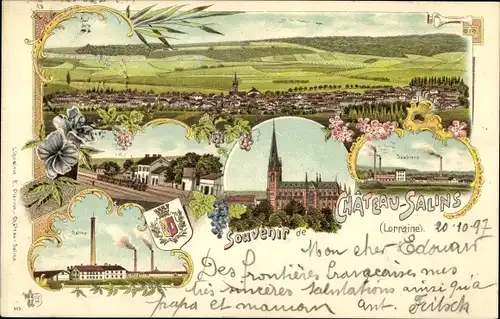 Souvenir de
CHÂTEAU-SALINS
(Lorraine).
20.10.97
Mon cher Edouard
Des frontières françaises mes
très sincères salutations ainsi qu'a
papa et maman Ant. Fritsch
Saline